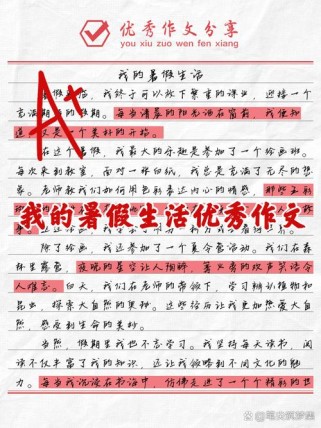 优秀作文分享
you xiu zuo wen fen xiang
我的暑假生活
A+
暑假来临，我终于可以放下繁重的课业，迎接一个
充满期待的假期。每当清晨的阳光洒在窗前，我便知
道又是一个美好的开始。
在这个暑假，我最大的乐趣是参加了一个绘画班。
每次来到教室，面对一张白纸，我总是充满了无尽的想
象。老师教我们如何用色彩表达内心的情感，那些五彩
我的暑假生活优秀作文
除了绘画，我还参加了一个夏令营活动。我们在森
林里露营，夜晚的星空让人陶醉，篝火旁的欢声笑语令
人难忘。白天，我们在老师的带领下，学习辨认植物和
昆虫，探索大自然的奥秘。这些经历让我更加热爱大自
然，感受到生命的美妙。
当然，假期里我也不忘学习。我坚持每天读书，阅
读不仅丰富了我的知识，还让我领略到不同文化的魅
力。每当我沉浸在书海中，仿佛走进了一个个精彩的世
@笔尖筑梦集